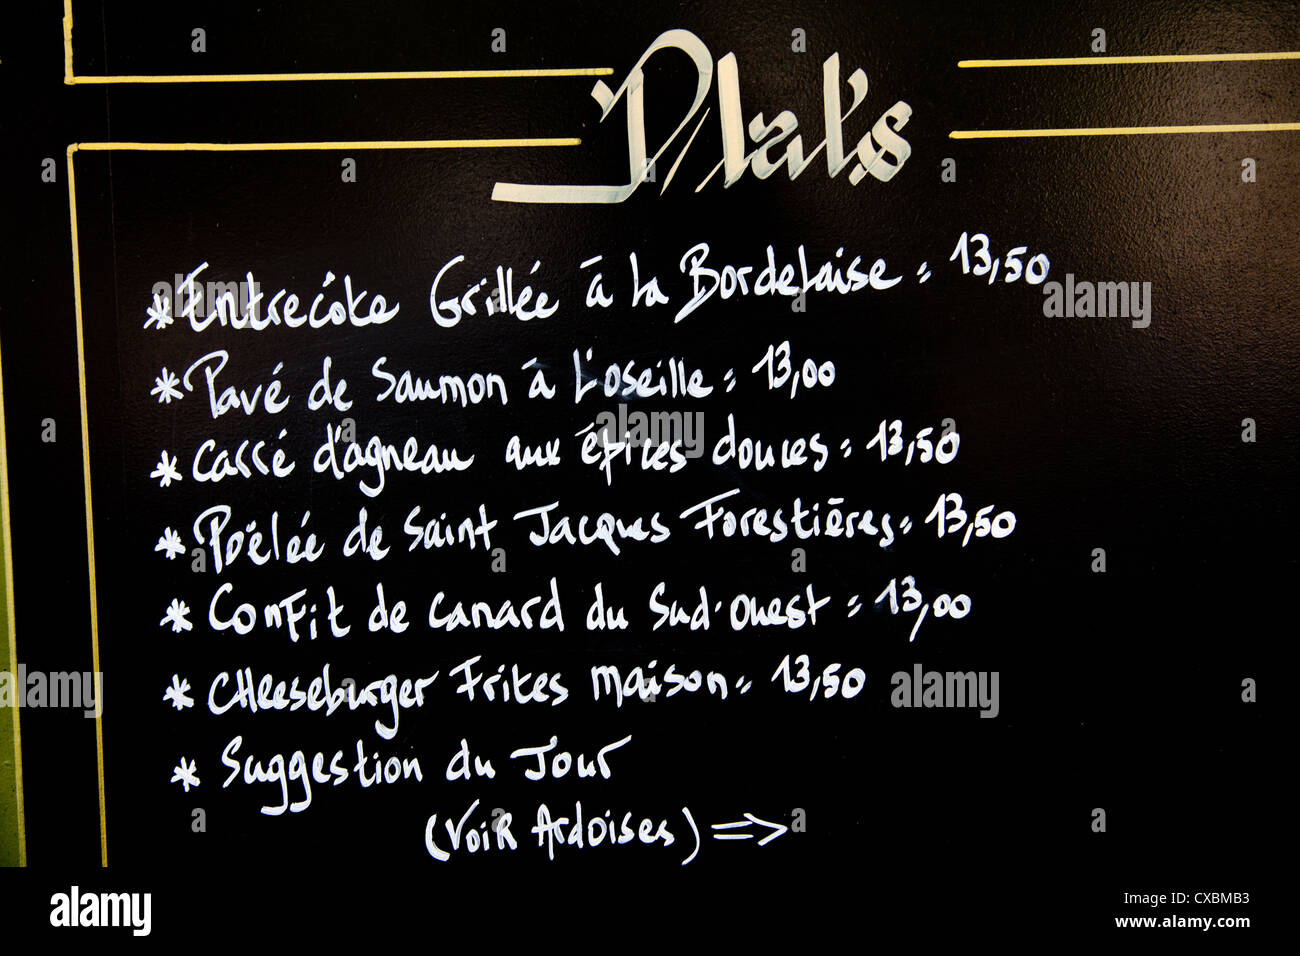 Plat's
* Entrecôte Grillée à la Bordelaise = 13,50
* Pavé de Saumon à l'oseille = 13,00
* Carré d'agneau aux épices douces = 13,50
* Poêlée de Saint Jacques Forestières = 13,50
* Confit de canard du Sud-Ouest = 13,00
* Cheeseburger Frites maison = 13,50
* Suggestion du Jour
(Voir Ardoises) =>
a alamy
alamy
Image ID: CXBMB3
www.alamy.com